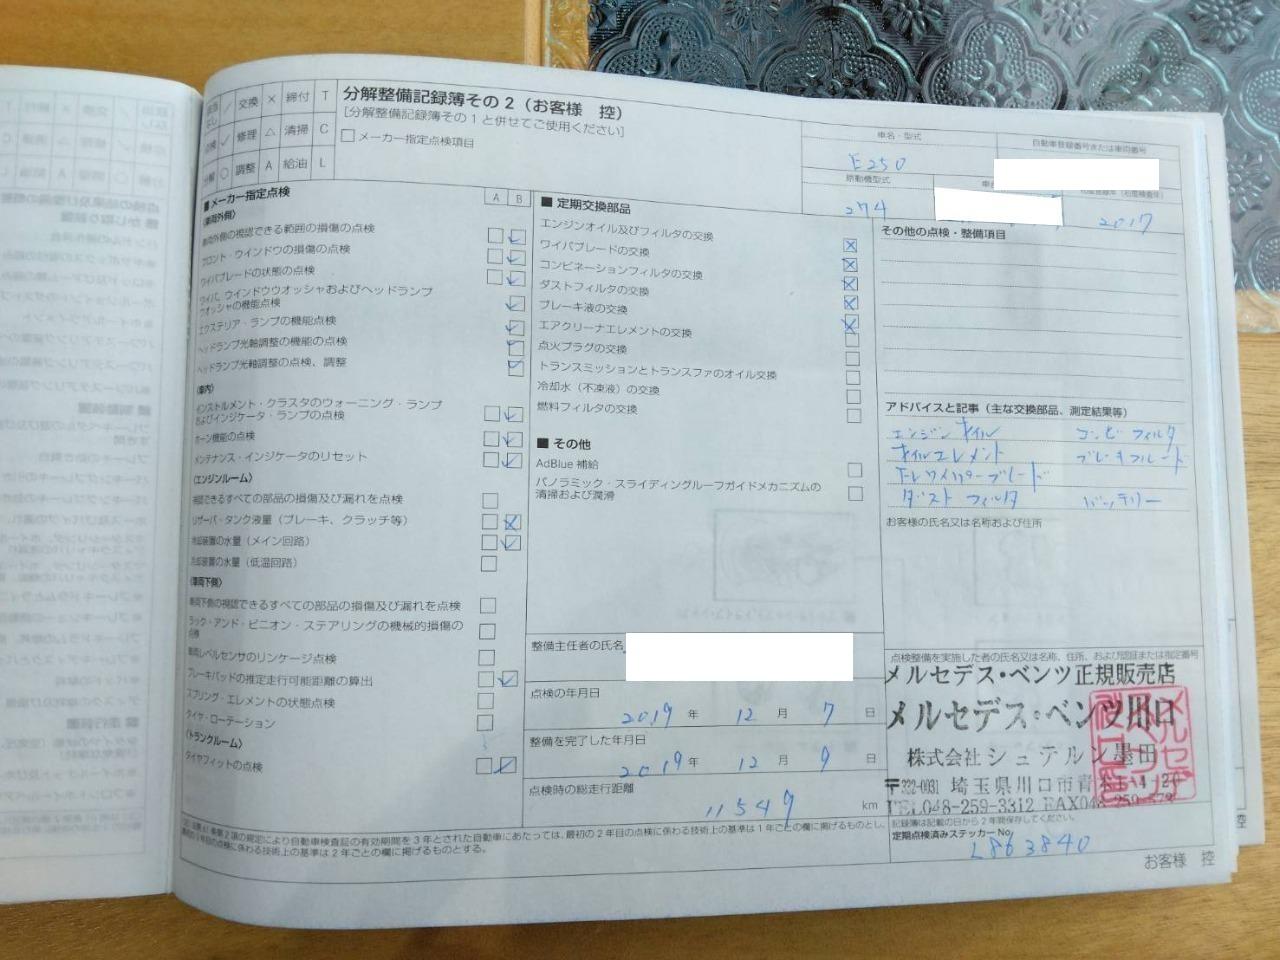 交換 × 締付 T
修理 △ 清掃 C
調整 A 給油 L
分解整備記録簿その2（お客様 控）
[分解整備記録簿その1と併せてご使用ください]
メーカー指定点検項目
車名・型式
E250
自動車登録番号または車両番号
原動機型式
274
2017
■メーカー指定点検
A B
（車両外側）
車両外側の視認できる範囲の損傷の点検
フロント・ウインドウの損傷の点検
ワイパブレードの状態の点検
ワイパ、ウインドウウオッシャおよびヘッドランプ
ウオッシャの機能点検
エクステリア・ランプの機能点検
ヘッドランプ光軸調整の機能の点検
ヘッドランプ光軸調整の点検、調整
（車内）
インストルメント・クラスタのウォーニング・ランプ
およびインジケータ・ランプの点検
ホーン機能の点検
メンテナンス・インジケータのリセット
（エンジンルーム）
視認できるすべての部品の損傷及び漏れを点検
リザーバ・タンク液量（ブレーキ、クラッチ等）
冷却装置の水量（メイン回路）
冷却装置の水量（低温回路）
（車両下側）
車両下側の視認できるすべての部品の損傷及び漏れを点検
ラック・アンド・ピニオン・ステアリングの機械的損傷の
点検
車両レベルセンサのリンケージ点検
ブレーキパッドの推定走行可能距離の算出
スプリング・エレメントの状態点検
タイヤ・ローテーション
（トランクルーム）
タイヤフィットの点検
■ 定期交換部品
エンジンオイル及びフィルタの交換
ワイパブレードの交換
コンビネーションフィルタの交換
ダストフィルタの交換
ブレーキ液の交換
エアクリーナエレメントの交換
点火プラグの交換
トランスミッションとトランスファのオイル交換
冷却水（不凍液）の交換
燃料フィルタの交換
■ その他
AdBlue 補給
パノラミック・スライディングルーフガイドメカニズムの
清掃および潤滑
整備主任者の氏名
点検の年月日
2019 年 12 月 7 日
整備を完了した年月日
2019 年 12 月 9 日
点検時の総走行距離
11549 km
その他の点検・整備項目
アドバイスと記事（主な交換部品、測定結果等）
エンジンオイル コンビフィルタ
オイルエレメント ブレーキフルード
ワイパーブレード
ダストフィルタ バッテリー
お客様の氏名又は名称および住所
点検整備を実施した者の氏名又は名称、住所、および認証または指定番号
メルセデス・ベンツ正規販売店
メルセデス・ベンツ川口
株式会社シュテルン墨田
〒332-0031 埼玉県川口市青木1-4-20
TEL048-259-3312 FAX048-259-
記録簿は記載の日から2年間保存してください。
定期点検済みステッカーNo.
L863840
の規定により自動車検査証の有効期間を3年とされた自動車にあたっては、最初の2年目の点検に係わる技術上の基準は1年ごとの欄に掲げるものとし、
年目の点検に係わる技術上の基準は2年ごとの欄に掲げるものとする。
お客様 控